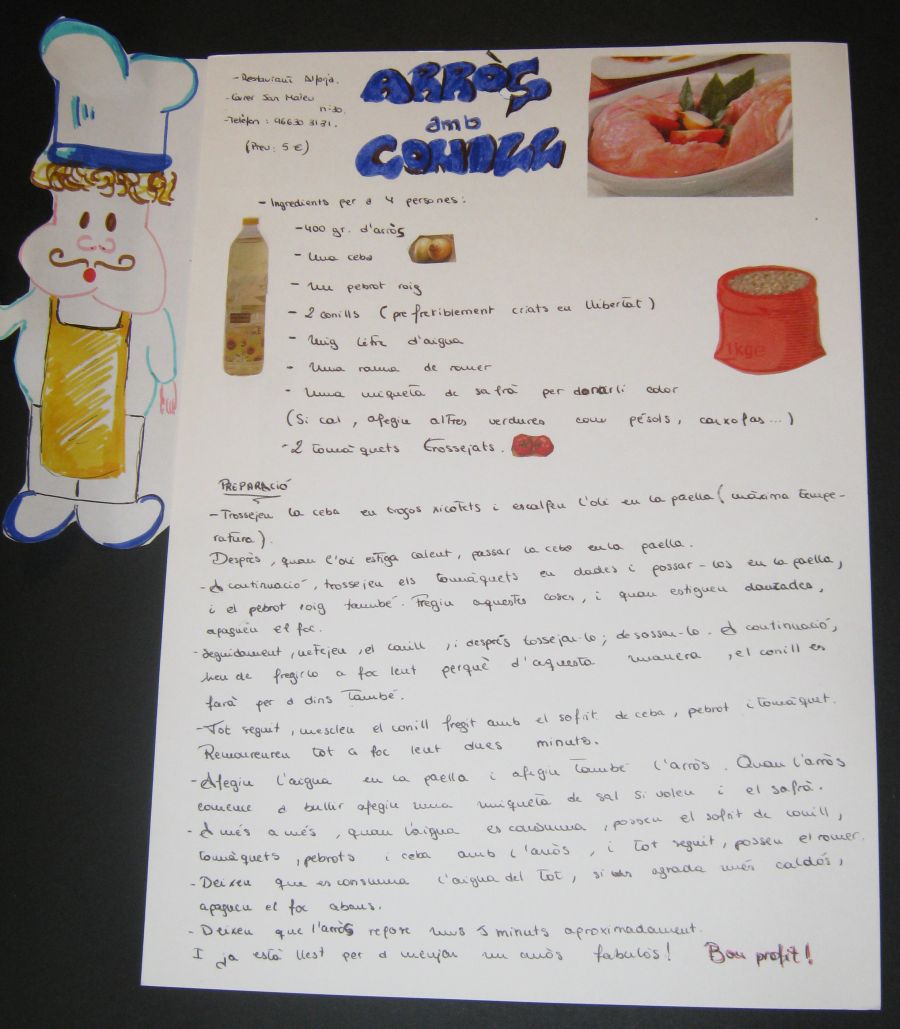 - Restaurant Alforja.
- Carrer San Mateu
nº 30.
- Telèfon : 96630 3131.
(Preu: 5 €)
ARRÒS
amb
CONILL
- Ingredients per a 4 persones:
- 400 gr. d'arròs
- Una ceba
- Un pebrot roig
- 2 conills (prefretiblement criats en llibertat)
- Mig litre d'aigua
- Una rama de romer
- Una miqueta de safrà per donarli color
(Si cal, afegiu altres verdures com pésols, carxofas...)
- 2 tomàquets trossejats.
1kge
PREPARACIÓ
- Trossejeu la ceba en troços xicotets i escalfeu l'oli en la paella (màxima tempe-
ratura).
Després, quan l'oli estiga calent, passar la ceba en la paella.
- A continuació, trossejeu els tomàquets en dades i possar-los en la paella,
i el pebrot roig també. Fregiu aquestes coses, i quan estiguen daurades,
apagueu el foc.
- Seguidament, netejeu, el conill, i després tossejau-lo; desossau-lo. A continuació,
heu de fregirlo a foc lent perquè d'aquesta manera, el conill es
farà per a dins també.
- Tot seguit, mescleu el conill fregit amb el sofrit de ceba, pebrot i tomàquet.
Remoureureu tot a foc lent dues minuts.
- Afegiu l'aigua en la paella i afegiu també l'arròs. Quan l'arròs
comence a bullir afegiu una miqueta de sal si voleu i el safrà.
- A més a més, quan l'aigua es consumma, posseu el sofrit de conill,
tomàquets, pebrots i ceba amb l'arròs, i tot seguit, posseu el romer.
- Deixeu que es consumma l'aigua del tot, si us agrada més caldós,
apagueu el foc abans.
- Deixeu que l'arròs repose uns 5 minuts aproximadament.
I ja està llest per a menjar un arròs fabulós! Bon profit!